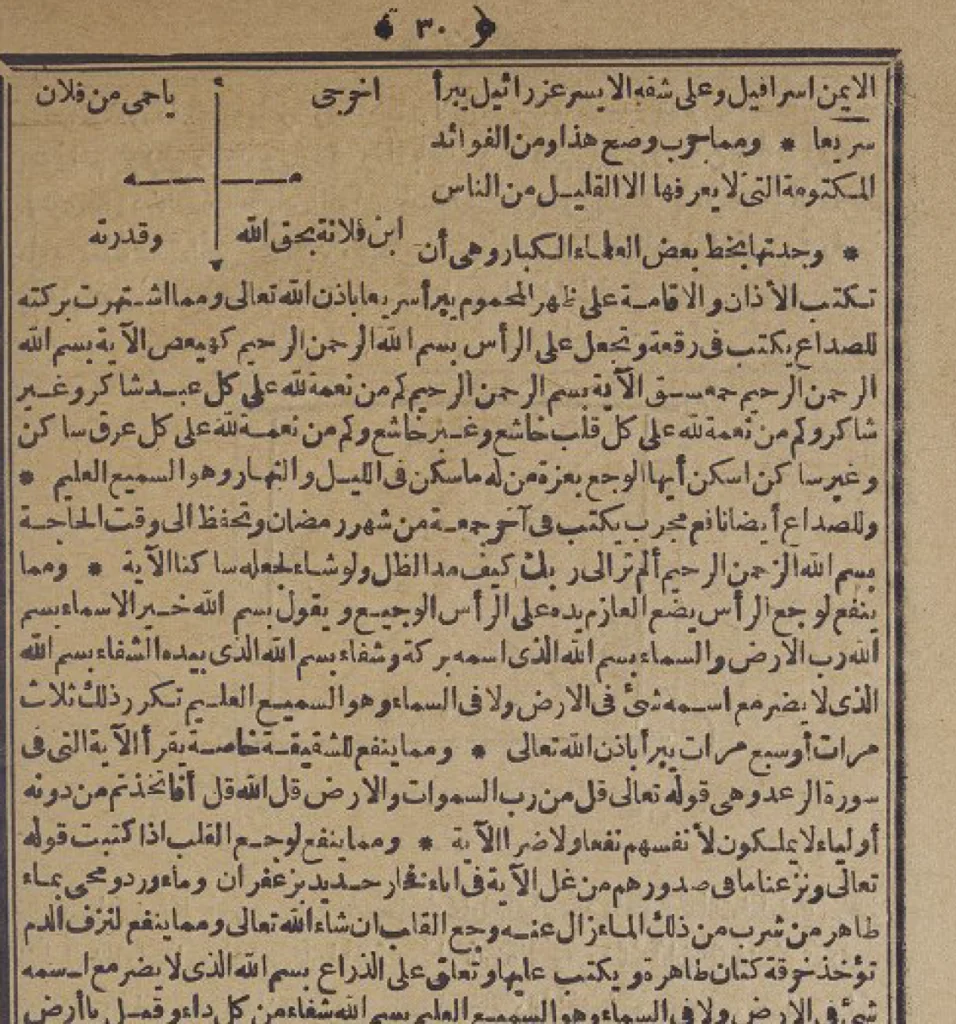 ﴿ ٣٠ ﴾
الايمن اسرافيل وعلى شقه الايسر عزرائيل يبرأ
سريعا * ومما جرب وصح هذا ومن الفوائد
المكتومة التى لا يعرفها الا القليل من الناس
* وجدتها بخط بعض العلماء الكبار وهى أن
اخرجى
ياحمى من فلان
ابن فلانة بحق الله
وقدرته
تكتب الأذان والاقامة على ظهر المحموم يبرأ سريعا باذن الله تعالى ومما اشتهرت بركته
للصداع يكتب فى رقعة وتجعل على الرأس بسم الله الرحمن الرحيم كهيعص الآية بسم الله
الرحمن الرحيم حمعسق الآية بسم الرحمن الرحيم كم من نعمة لله على كل عبد شاكر وغير
شاكر وكم من نعمة لله على كل قلب خاشع وغير خاشع وكم من نعمة لله على كل عرق ساكن
وغير ساكن اسكن أيها الوجع بعزة من له ما سكن فى الليل والنهار وهو السميع العليم *
وللصداع أيضا نافع مجرب يكتب فى آخر جمعة من شهر رمضان وتحفظ الى وقت الحاجة
بسم الله الرحمن الرحيم ألم تر الى ربك كيف مد الظل ولو شاء لجعله ساكنا الآية * ومما
ينفع لوجع الرأس يضع العازم يده على الرأس الوجيع ويقول بسم الله خير الاسماء بسم
الله رب الارض والسماء بسم الله الذى اسمه بركة وشفاء بسم الله الذى بيده الشفاء بسم الله
الذى لا يضر مع اسمه شئ فى الارض ولا فى السماء وهو السميع العليم تكرر ذلك ثلاث
مرات أو سبع مرات يبرأ باذن الله تعالى * ومما ينفع للشقيقة خاصة يقرأ الآية التى فى
سورة الرعد وهى قوله تعالى قل من رب السموات والارض قل الله قل أفاتخذتم من دونه
أولياء لا يملكون لأنفسهم نفعا ولا ضرا الآية * ومما ينفع لوجع القلب اذا كتبت قوله
تعالى ونزعنا ما فى صدورهم من غل الآية فى اناء فخار جديد بزعفران وماء ورد ومحى بماء
طاهر من شرب من ذلك الماء زال عنه وجع القلب ان شاء الله تعالى ومما ينفع لنزف الدم
تؤخذ خرقة كتان طاهرة ويكتب عليها وتعلق على الذراع بسم الله الذى لا يضر مع اسمه
شئ فى الارض ولا فى السماء وهو السميع العليم بسم الله شفاء من كل داء وقيل ياأرض